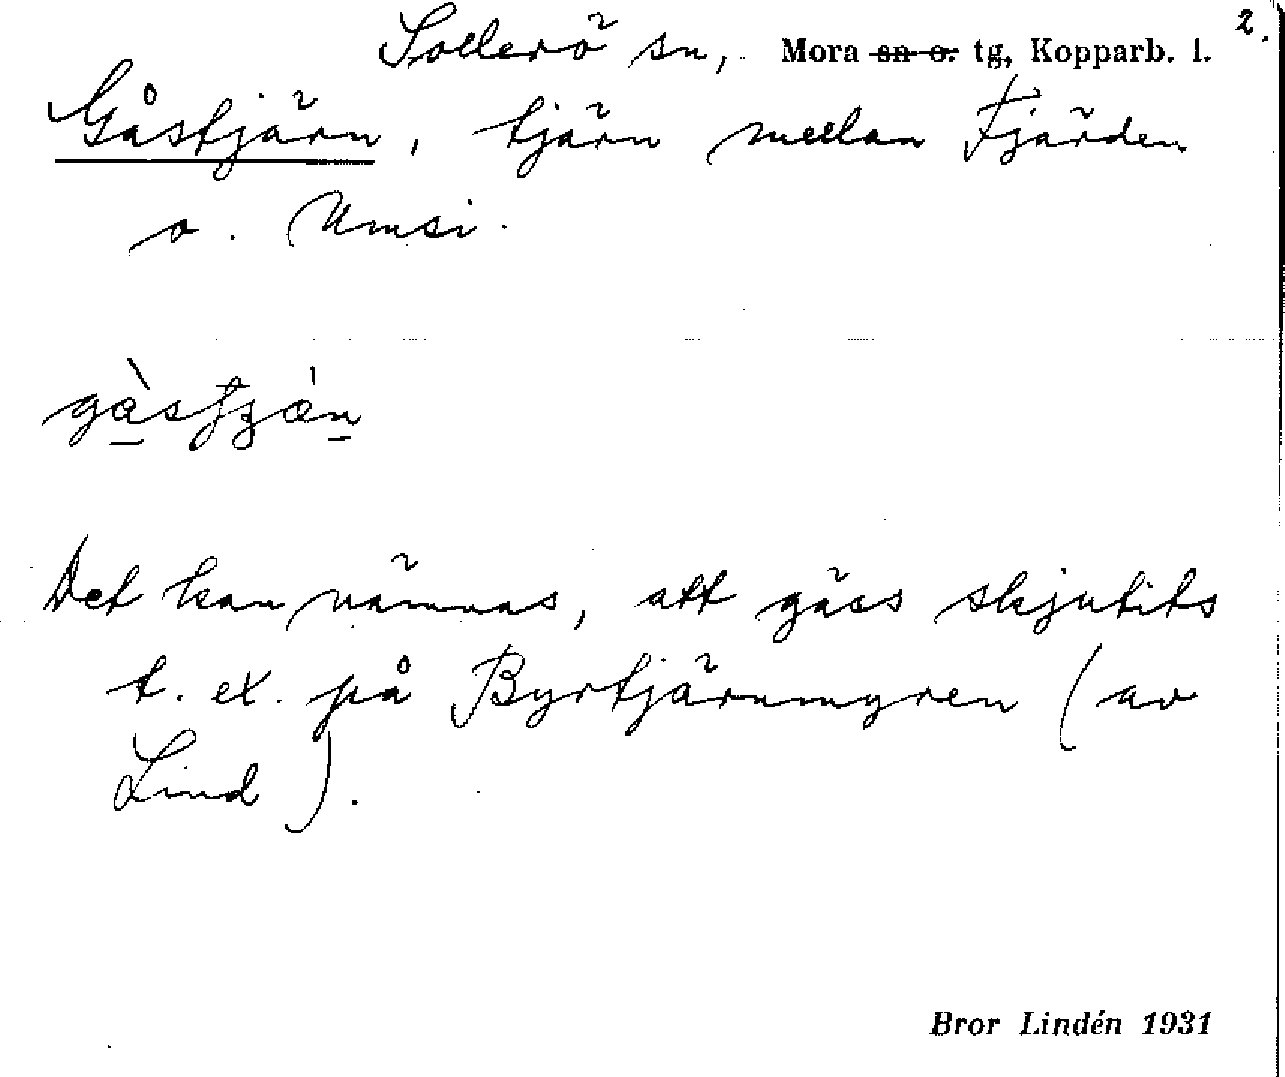 2.
Sollerö sn, Mora sn o. tg, Kopparb. l.
Gåstjärn, tjärn mellan Fjärden
o. Umsi.
Det kan nämnas, att gäss skjutits
t. ex. på Byrtjärnmyren (av
Lind).
Bror Lindén 1931